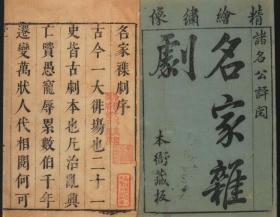 精繪繡像
諸名公評閱
名家雜
劇
本衙藏板
名家襍劇序
古今一大俳場也二十一
史皆古劇本也凡治亂興
亡賢愚寵辱累數伯千年
遷變萬狀人代相閱何可